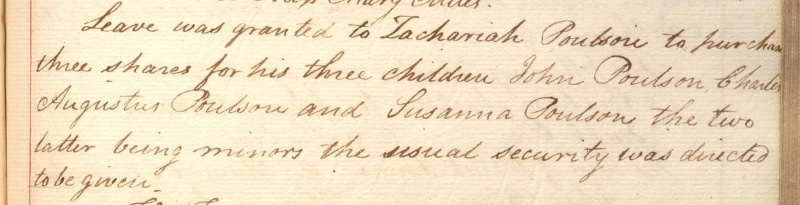 Leave was granted to Zachariah Poulson to purchase
three shares for his three children John Poulson, Charles
Augustus Poulson and Susanna Poulson the two
latter being minors the usual security was directed
to be given.